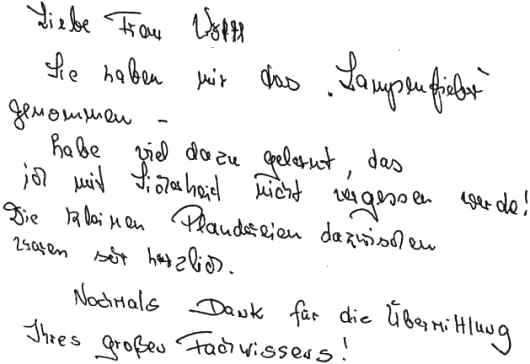 Liebe Frau
Sie haben mir das "Lampenfieber"
genommen -
habe viel dazu gelernt, das
ich mit Sicherheit nicht vergessen werde!
Die kleinen Plaudereien dazwischen
waren sehr herzlich.
Nochmals Dank für die Übermittlung
Ihres großen Fachwissens!